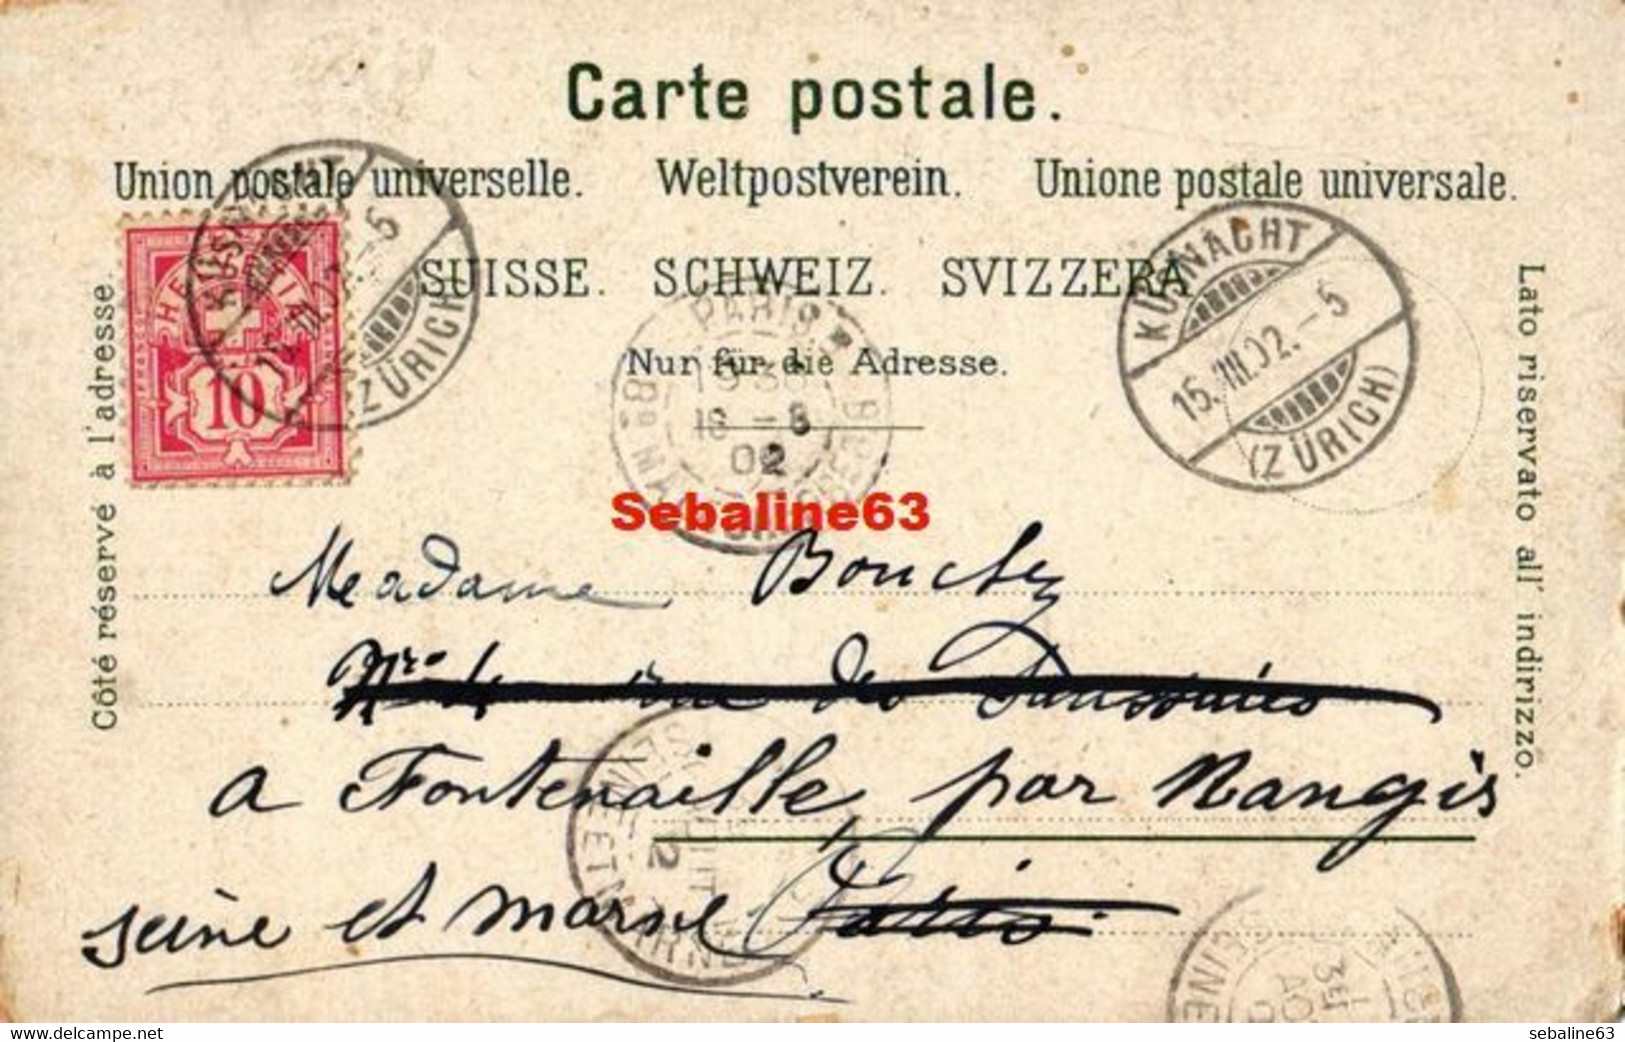 Carte postale.
Union postale universelle. Weltpostverein. Unione postale universale.
SUISSE. SCHWEIZ. SVIZZERA
Nur für die Adresse.
Côté réservé à l'adresse.
Lato riservato all' indirizzo.
HELVETIA
10
KÜSNACHT
15.VIII.02.-5
(ZÜRICH)
KÜSNACHT
15.VIII.02.-5
(ZÜRICH)
PARIS
16-8
02
Sebaline63
Madame Bouchy
rue des Saussaies
a Fontenaille, par Nangis
seine et marne Paris.
SEINE ET MARNE
SEINE
www.delcampe.net
sebaline63